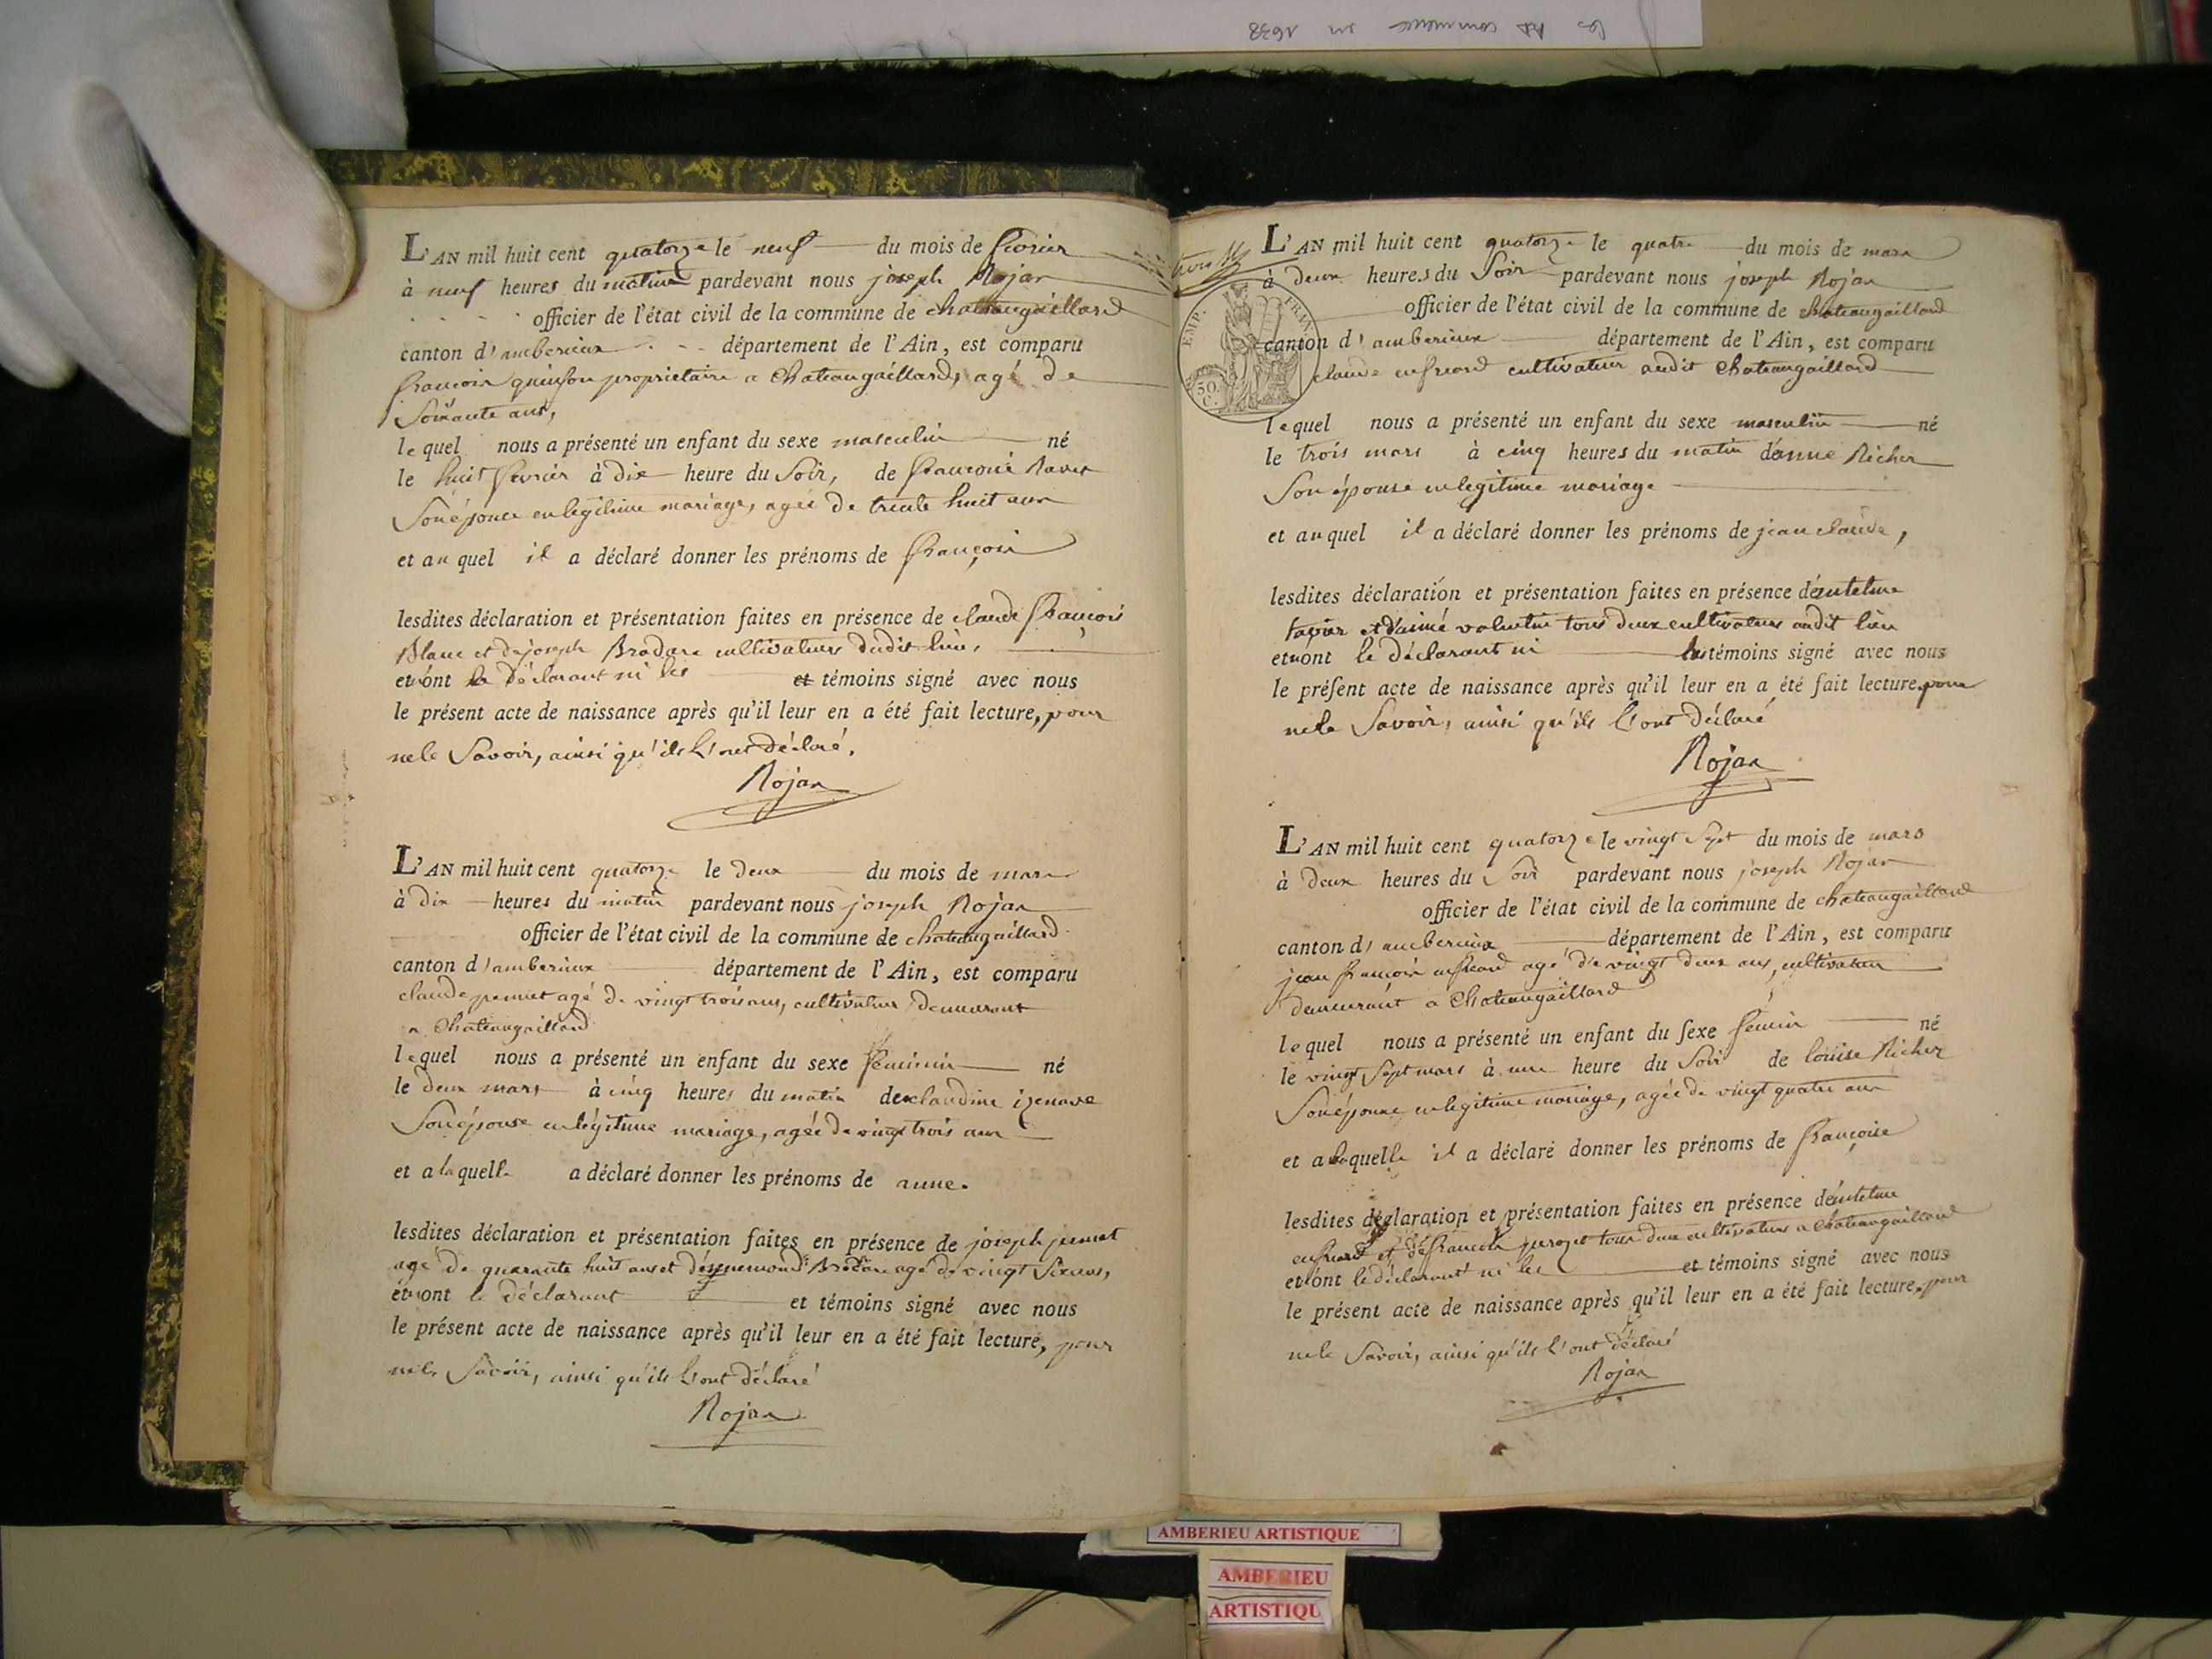 L'AN mil huit cent quatorze le neuf du mois de fevrier
à neuf heures du matin pardevant nous joseph Rojan
officier de l'état civil de la commune de chateaugaillard
canton d'amberieux département de l'Ain, est comparu
francois quinson proprietaire a chateaugaillard, agé de
Soixante ans,
lequel nous a présenté un enfant du sexe masculin né
le huit fevrier à dix heure du Soir, de francoise Ravet
Son épouse en legitime mariage, agée de trente huit ans
et auquel il a déclaré donner les prénoms de françois
lesdites déclaration et présentation faites en présence de claude françois
Blanc et de joseph Brodare cultivateurs dudit lieu,
et n'ont le déclarant ni les et témoins signé avec nous
le présent acte de naissance après qu'il leur en a été fait lecture, pour
ne le Savoir, ainsi qu'ils l'ont déclaré.
Rojan
L'AN mil huit cent quatorze le deux du mois de mars
à dix heures du matin pardevant nous joseph Rojan
officier de l'état civil de la commune de chateaugaillard
canton d'amberieux département de l'Ain, est comparu
claude pennet agé de vingt trois ans, cultivateur demeurant
a chateaugaillard
lequel nous a présenté un enfant du sexe feminin né
le deux mars à cinq heures du matin de claudine izenave
Son épouse en légitime mariage, agée de vingt trois ans
et a laquelle a déclaré donner les prénoms de anne.
lesdites déclaration et présentation faites en présence de joseph pennet
agé de quarante huit ans et agé de vingt Six ans,
et n'ont le déclarant et témoins signé avec nous
le présent acte de naissance après qu'il leur en a été fait lecture, pour
ne le Savoir, ainsi qu'ils l'ont déclaré
Rojan
EMP. FRAN.
50 C.
L'AN mil huit cent quatorze le quatre du mois de mars
à deux heures du Soir pardevant nous joseph Rojan
officier de l'état civil de la commune de chateaugaillard
canton d'amberieux département de l'Ain, est comparu
claude cultivateur audit chateaugaillard
lequel nous a présenté un enfant du sexe masculin né
le trois mars à cinq heures du matin d'anne Richer
Son épouse en legitime mariage
et auquel il a déclaré donner les prénoms de jean claude,
lesdites déclaration et présentation faites en présence d'antelme
tavier et d'aimé valentin tous deux cultivateurs audit lieu
et n'ont le déclarant ni les témoins signé avec nous
le présent acte de naissance après qu'il leur en a été fait lecture, pour
ne le Savoir, ainsi qu'ils l'ont déclaré
Rojan
L'AN mil huit cent quatorze le vingt Sept du mois de mars
à deux heures du Soir pardevant nous joseph Rojan
officier de l'état civil de la commune de chateaugaillard
canton d'amberieux département de l'Ain, est comparu
jean francois agé de vingt deux ans, cultivateur
demeurant a chateaugaillard
lequel nous a présenté un enfant du sexe femin né
le vingt Sept mars à une heure du Soir de louise Richer
Son épouse en legitime mariage, agée de vingt quatre ans
et a laquelle il a déclaré donner les prénoms de françoise
lesdites déclaration et présentation faites en présence d'antelme
et de francois tous deux cultivateurs a chateaugaillard
et n'ont le déclarant ni les et témoins signé avec nous
le présent acte de naissance après qu'il leur en a été fait lecture, pour
ne le Savoir, ainsi qu'ils l'ont déclaré
Rojan
AMBERIEU ARTISTIQUE
AMBERIEU
ARTISTIQU